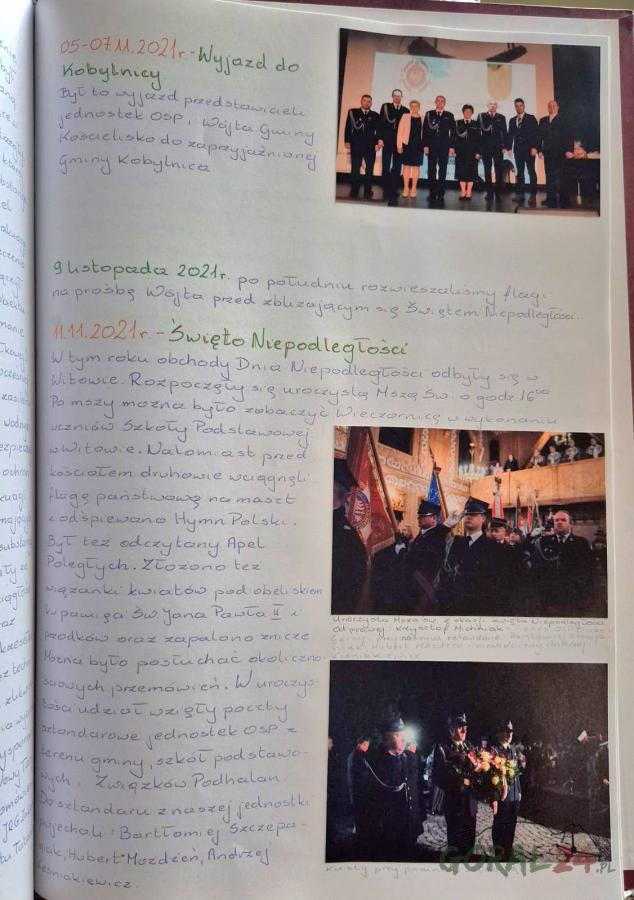 05-07.11.2021r.-Wyjazd do
Kobylnicy.
Był to wyjazd przedstawicieli
jednostek OSP i Wójta Gminy
Kościelisko do zaprzyjaźnionej
Gminy Kobylnica
9 listopada 2021r. po południu rozwieszaliśmy flagi
na prośbę Wójta przed zbliżającym się Świętem Niepodległości.
11.11.2021r.-Święto Niepodległości
W tym roku obchody Dnia Niepodległości odbyły się w
Witowie. Rozpoczęły się uroczystą Mszą Św. o godz 16⁰⁰
Po mszy można było zobaczyć Wieczornicę w wykonaniu
uczniów Szkoły Podstawowej
w Witowie. Natomiast przed
kościołem druhowie wciągnęli
flagę państwową na maszt
i odśpiewano Hymn Polski.
Był też odczytany Apel
Poległych. Złożono też
wiązanki kwiatów pod obeliskiem
ku pamięci Św. Jana Pawła II i
przodków oraz zapalono znicze
Można było posłuchać okoliczno-
ściowych przemówień. W uroczys-
tości udział wzięły poczty
sztandarowe jednostek OSP z
terenu gminy, szkół podstawo-
wych i Związków Podhalan
Do sztandaru z naszej jednostki
pojechali: Bartłomiej Szczepa-
niak, Hubert Mozdzeń, Andrzej
Leśniakiewicz.
Uroczysta Msza św. z okazji Święta Niepodległości
Kwiaty przy
GÓRAL24.PL